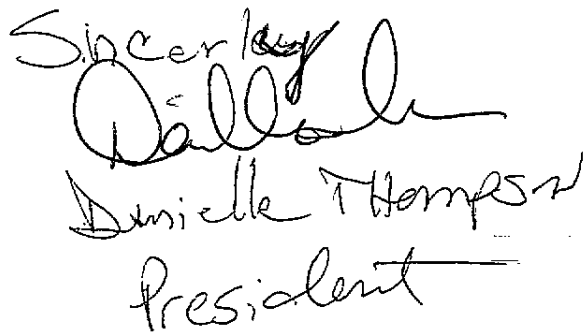 Sincerley
Danielle THompson
President